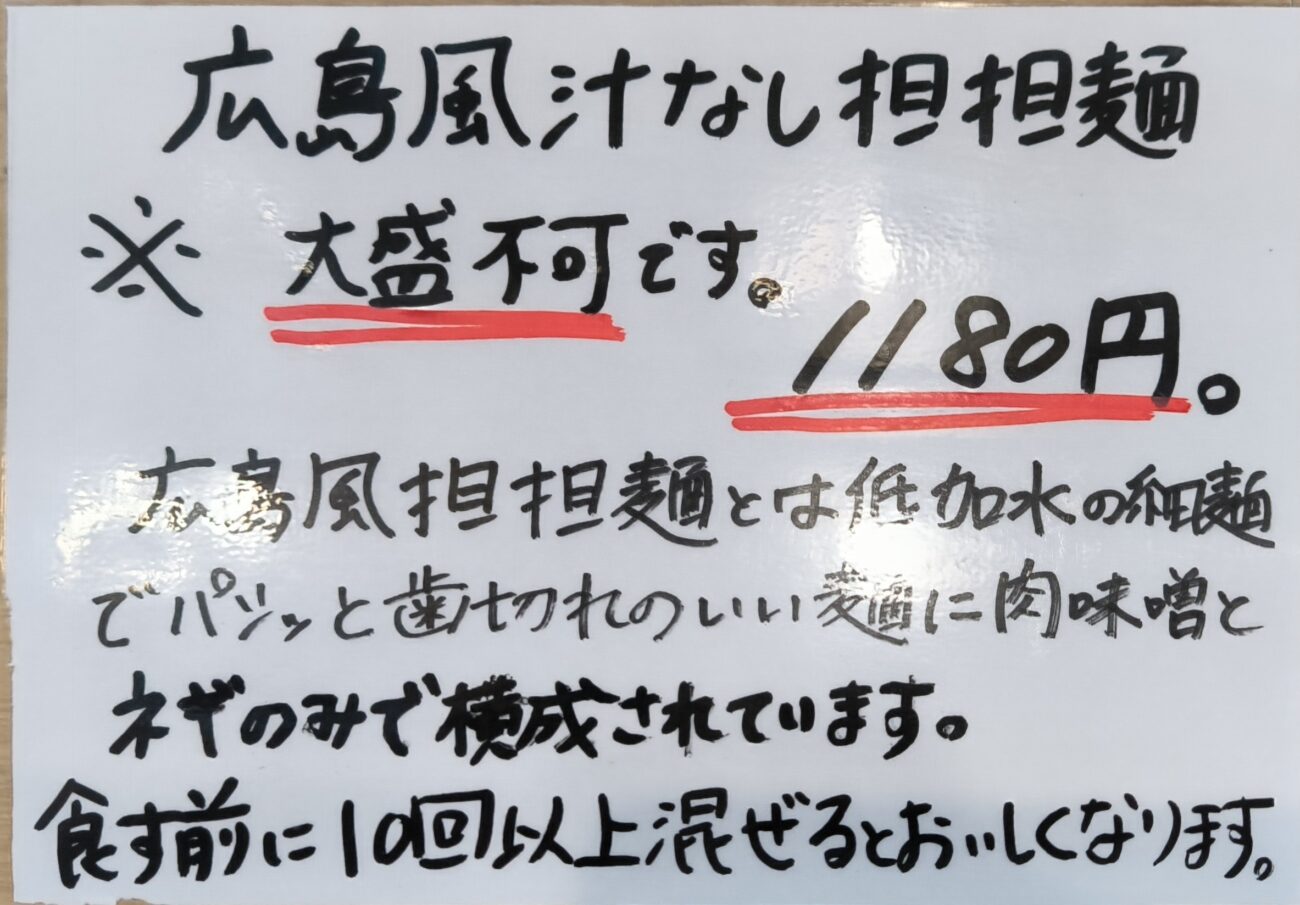 広島風汁なし担担麺
※ 大盛不可です。
1180円。
広島風担担麺とは低加水の細麺
でパツッと歯切れのいい麺に肉味噌と
ネギのみで構成されています。
食す前に10回以上混ぜるとおいしくなります。